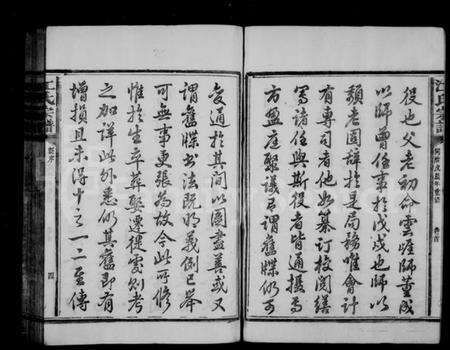 江氏宗譜
役也父老初命雲涯師董成
以師曾任事於戊戌也師以
頽老固辭於是局務唯會計
有專司者他如纂訂校閱繕
寫諸任與斯役者皆通攝焉
方盈庭聚議曰謂舊牒仍可
變通於其間以圖盡善或又
謂舊牒書法既明義例已舉
可無事更張為故今此可修
惟於生卒葬娶遷徙處則考
之加詳此外悉仍其舊即有
增損且未得十之一二至傳
江氏宗譜
新序
四